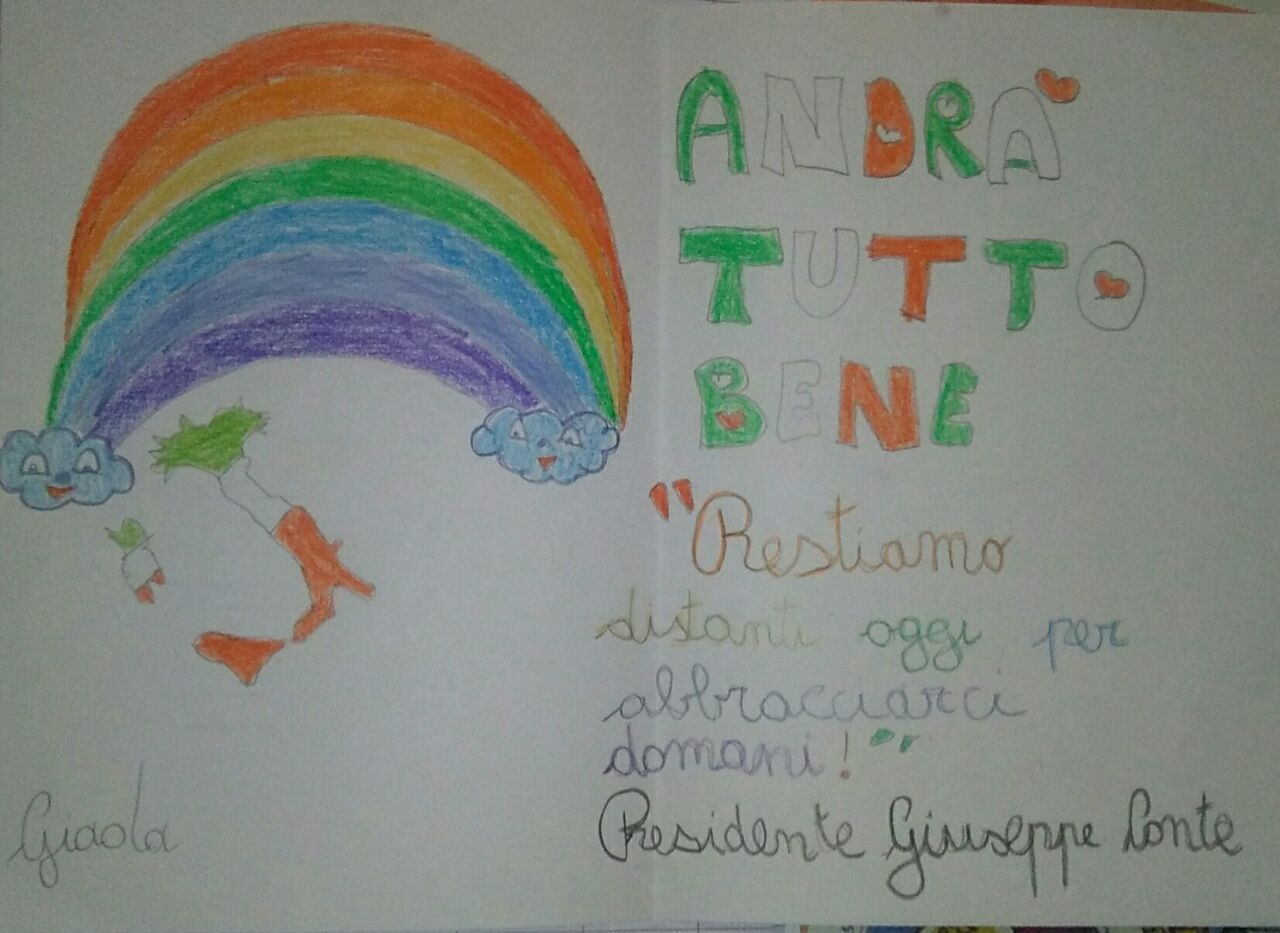 ANDRÀ
TUTTO
BENE
"Restiamo
distanti oggi per
abbracciarci
domani!"
Presidente Giuseppe Conte
Giada